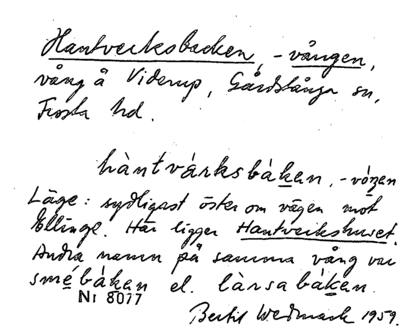 Hantverksbacken, -vången,
vång å Viderup, Gårdstånga sn,
Frosta hd.
hàntvárksbáken, -vóŋen
Läge: sydligast öster om vägen mot
Ellinge. Här ligger Hantverkshuset.
Andra namn på samma vång var
smébáken el. làrsabáken.
Nr 8077
Bertil Wedmark 1959.